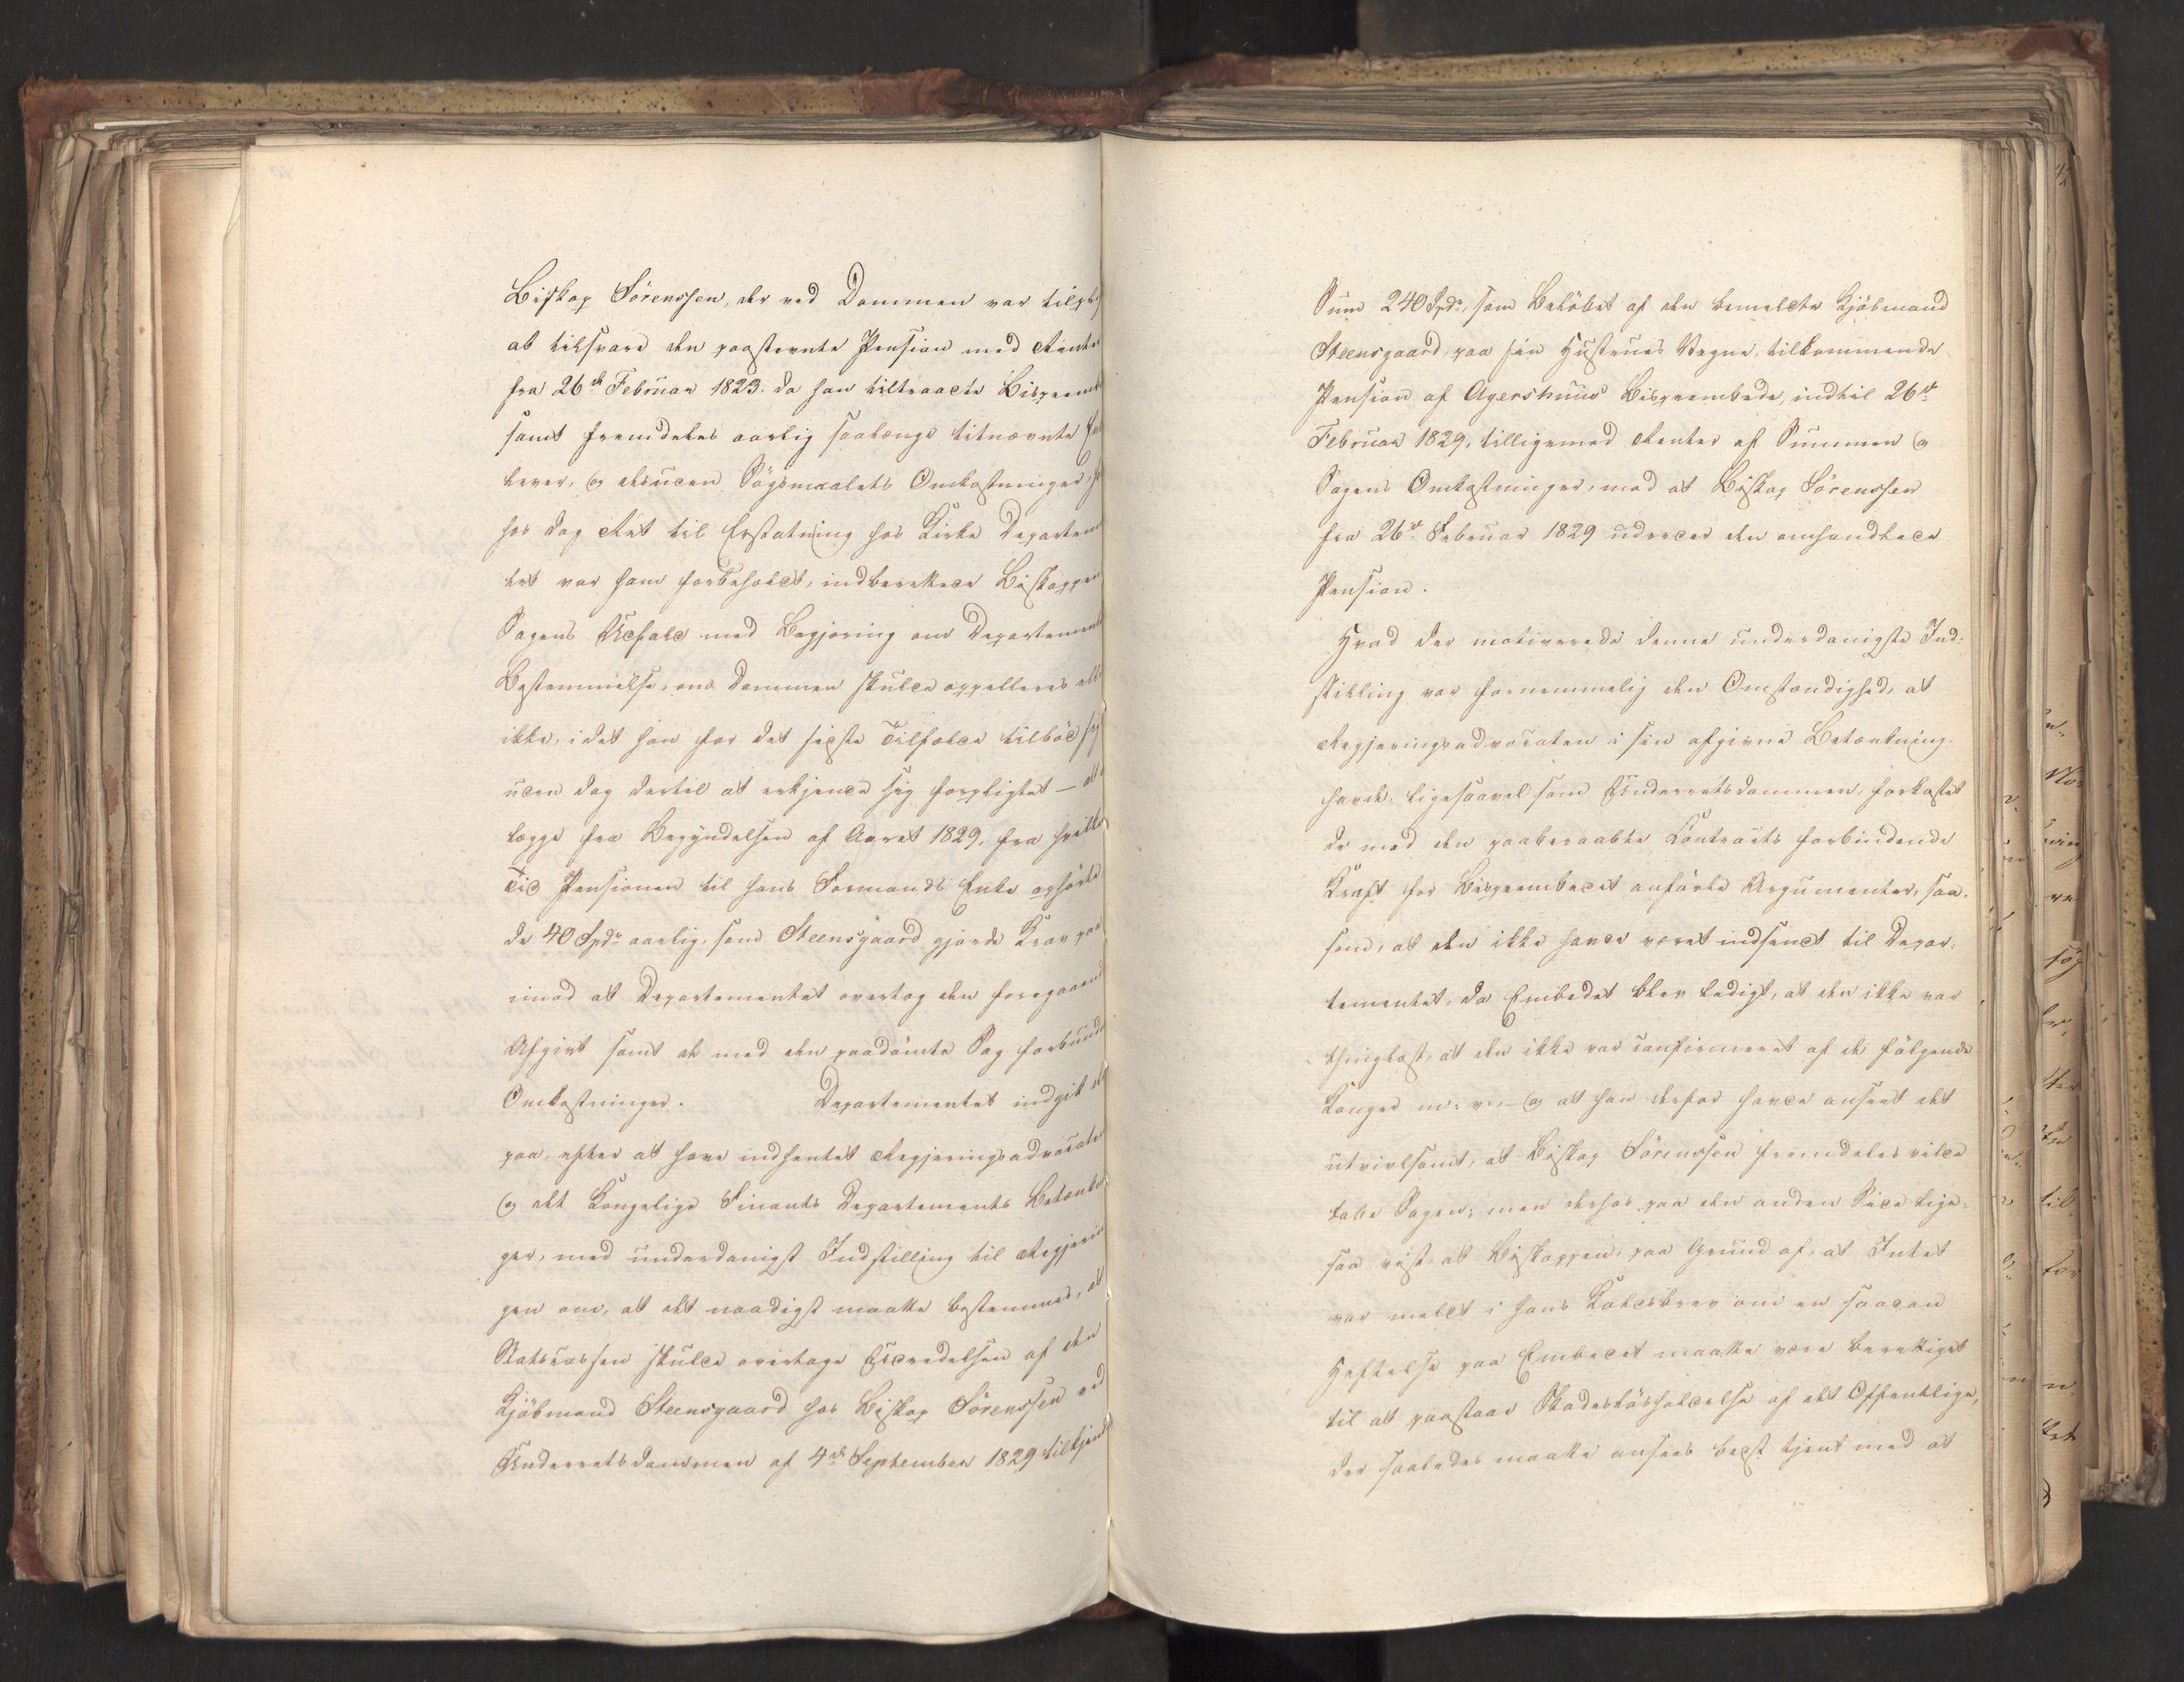 Biskop Sörenssen, der ved Dommen var tilpl
at tilsvare den paastevnte Pension med Renter
fra 26de Februar 1823. da han tiltraadte Bispeemb
samt fremdeles aarlig saalænge bitnævnte
lever, og desuden Søgsmaalets Omkostninger,
hos dog Ret til Erstatning hos Kirke Departem
tet var ham forbeholdt, indberettede Biskoppen
Sagens Udfald med Begjæring om Departement
Bestemmelse, om Dommen skulde appelleres ell
ikke, idet han for det sidste Tilfælde tilböd sig
uden dog dertil at erkjende sig forpligtet – at
lægge fra Begyndelsen af Aaret 1829, fra hvilke
Tid Pensionen til hans Formands Enke ophörte
de 40 Spdr aarlig, som Steensgaard gjorde Krav paa
imod at Departementet overtog den foregaaend
Afgivt samt de med den paadömte Sag forbund
Omkostninger. Departementet indgik de
paa, efter at have indhentet Regjeringsadvocate
og det Kongelige Finants Departements Betænkn
ger, med underdanigst Indstilling til Regjerin
gen om, at det naadigst maatte bestemmes, at
Statscassen skulde overtage Udredelsen af den
Kjöbmand Steensgaard hos Biskop Sörenssen ved
Underretsdommen af 4de September 1829 tilkjend
Sum 240 Spdr, som Belöbet af den bemeldte Kjöbmand
Steensgaard, paa sin Hustrues Vegne, tilkommende
Pension af Agershuus Bispeembede, indtil 26de
Februar 1829, tilligemed Renter af Summen og
Sagens Omkostninger, mod at Biskop Sörenssen
fra 26de Februar 1829 udreder den omhandlede
Pension.
Hvad der motiverede denne underdanigste Ind-
stilling var fornemmelig den Omstændighed, at
Regjeringsadvocaten i sin afgivne Betænkning
havde, ligesaavel som Underretsdommen, forkastet
de mod den paaberaabte Contracts forbindende
Kraft for Bispeembedet anførte Argumenter, saa-
som, at den ikke havde været indsendt til Depar-
tementet, da Embedet blev ledigt, at den ikke var
thinglæst, at den ikke var confirmeret af de fölgende
Konger m: v:, – og at han derfor havde anseet det
utvivlsomt, at Biskop Sörenssen fremdeles vilde
tabe Sagen; men derhos paa den anden Side lige-
saa vist, at Biskoppen, paa Grund af, at Intet
var meldt i hans Kaldsbrev om en saadan
Heftelse paa Embedet maatte være berettiget
til at paastaae Skadeslösholdelse af det Offentlige,
der saaledes maatte ansees bedst tjent med at